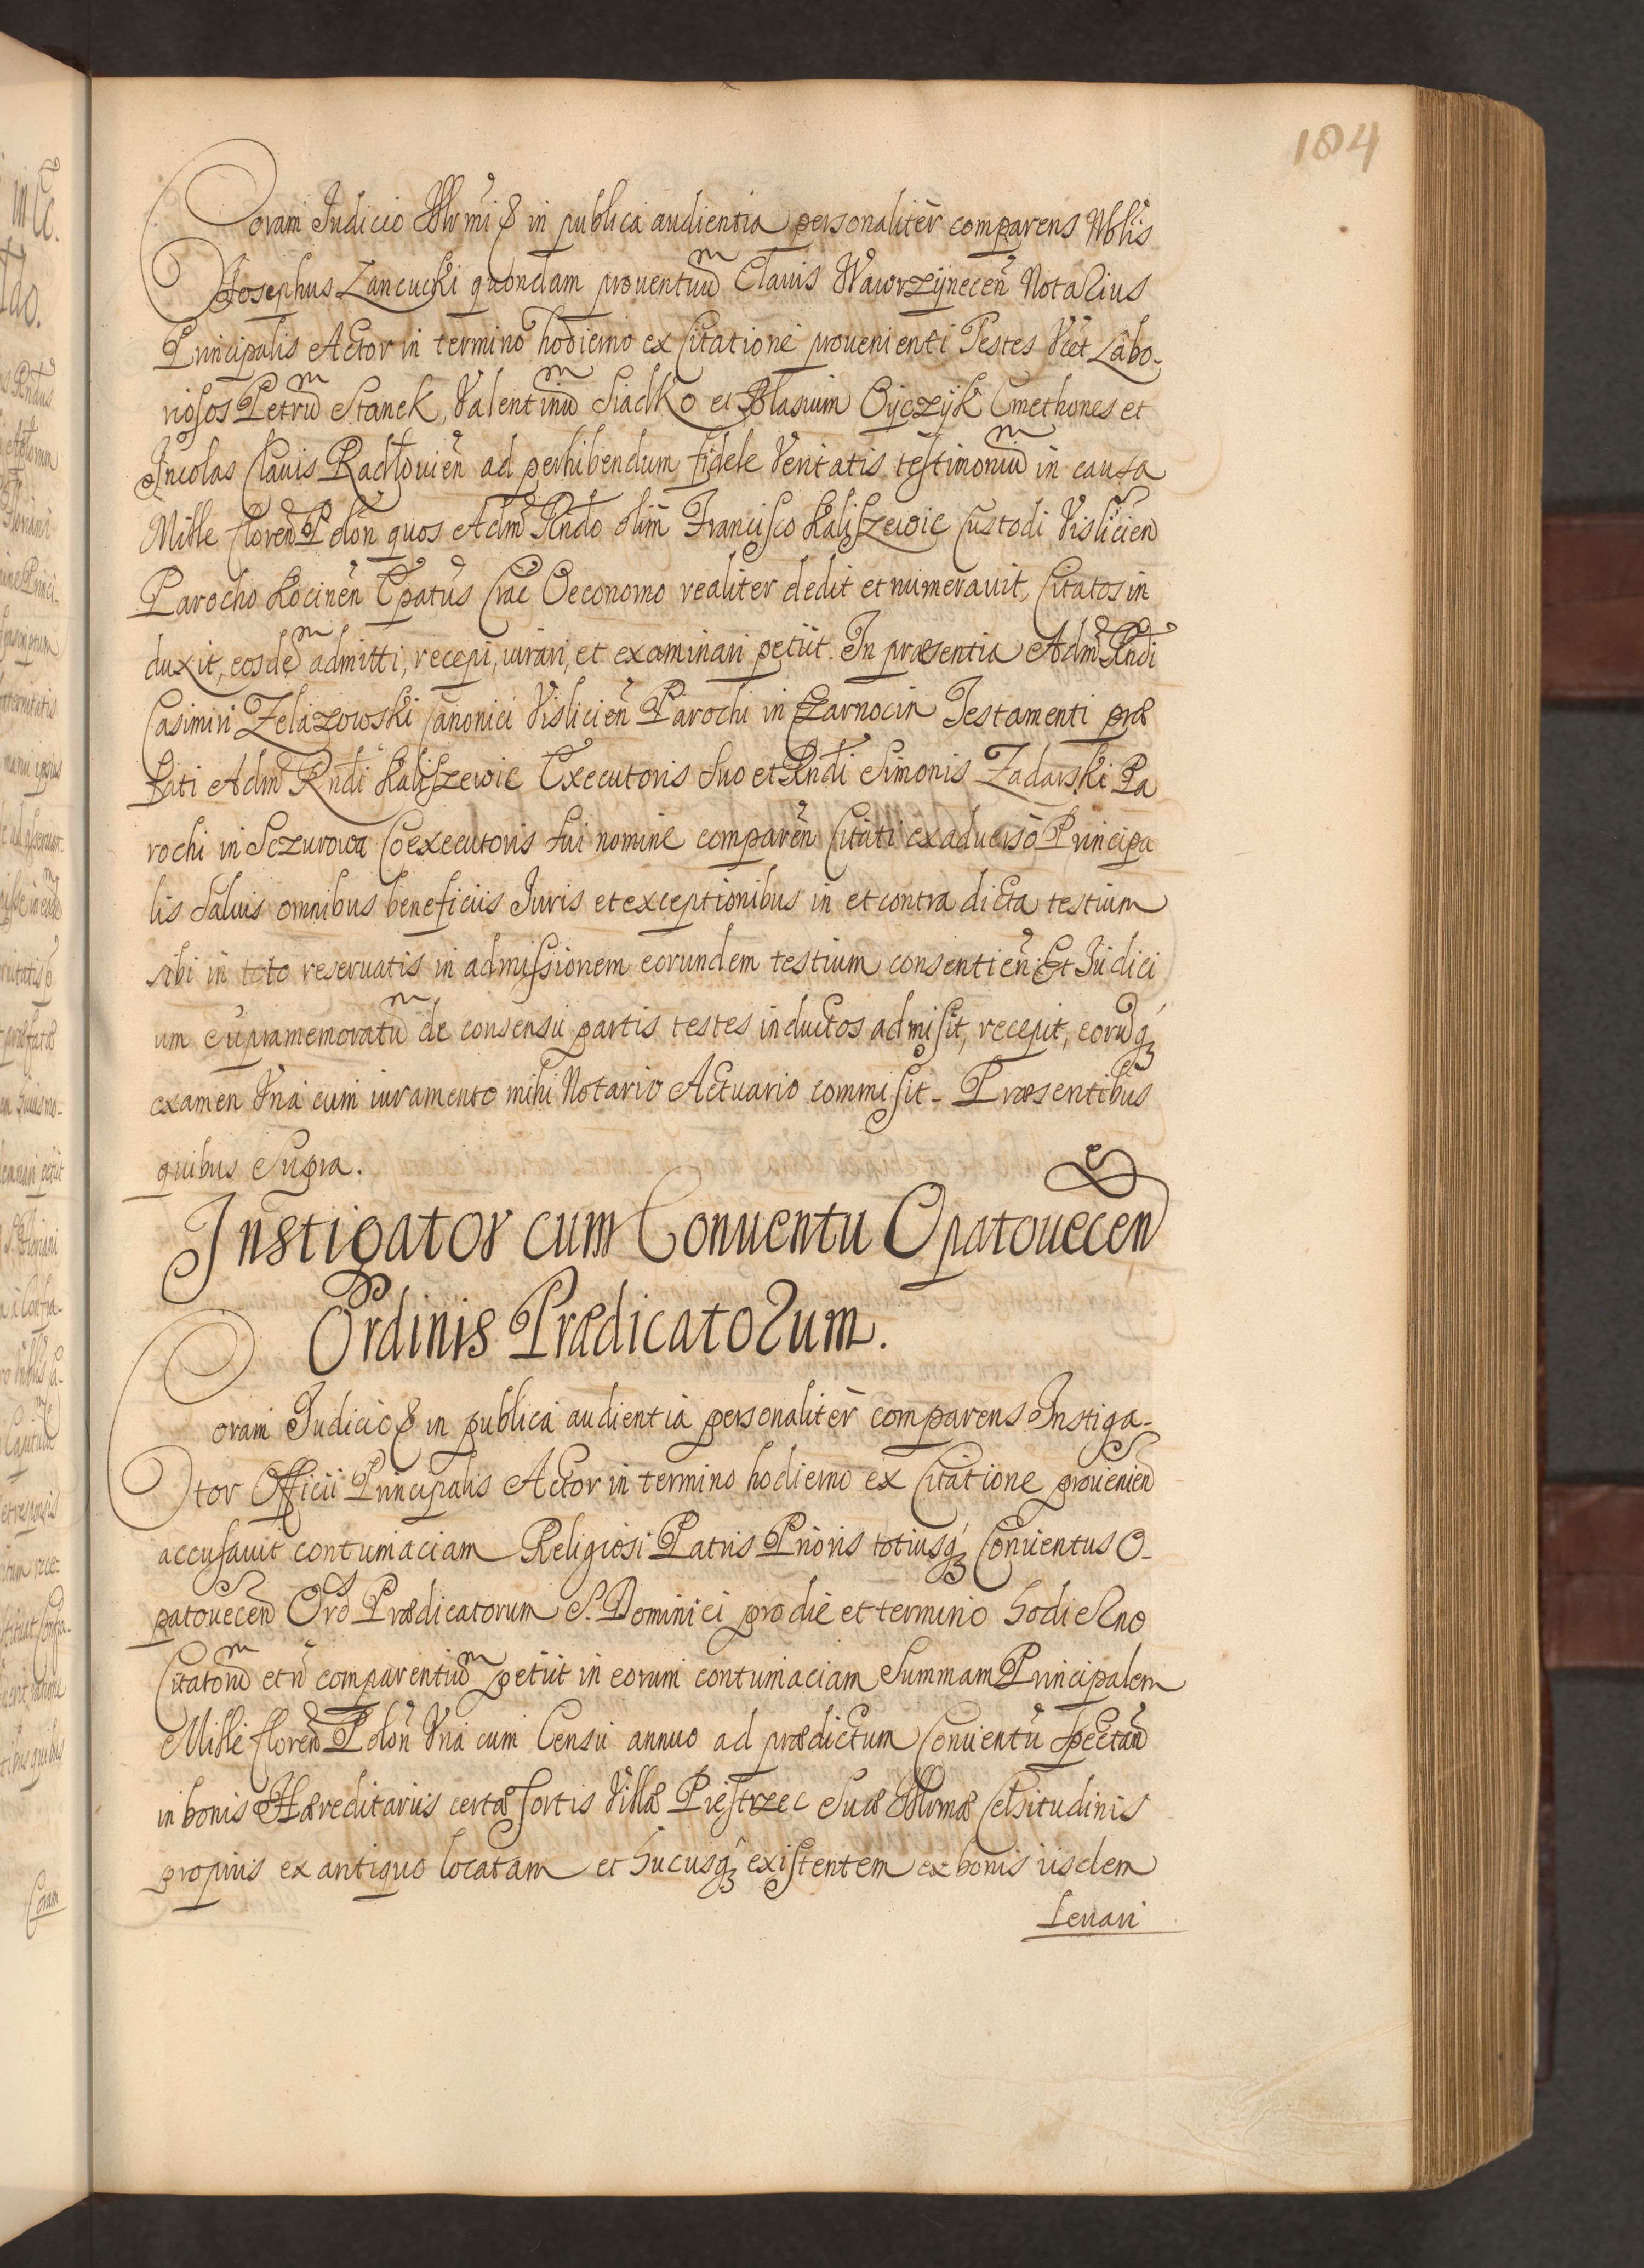 184
Coram Judicio Illrmi & in publica audientia personaliter comparens Nblis
Josephus Zancucki quondam prouentuum Clauis Wawrzynecen Notarius
Principalis Actor in termino hodierno ex Citatione prouenienti Testes Vict Labo-
riosos Petrum Stanek, Valentinum Siadko et Blasium Oyczyk Cmethones et
Incolas Clauis Radłouien ad perhibendum fidele Veritatis testimonium in causa
Mille floren Polon quos Adm Rndo olim Francisco Kaliszewic Custodi Vislicien
Parocho Kocinen Epatus Crac Oeconomo realiter dedit et numerauit, Citatos in
duxit, eosdem admitti, recepi, iurari, et examinari petiit. In præsentia Adm Rndi
Casimiri Zelazowski Canonici Vislicien Parochi in Czarnocin Testamenti præ
fati Adm Rndi Kaliszewic Executoris suo et Rndi Simonis Zadarski Pa
rochi in Sczurowa Coexecutoris sui nomine comparen Citati ex aduerso Principa
lis Saluis omnibus beneficiis Juris et exceptionibus in et contra dicta testium
sibi in toto reseruatis in admissionem eorundem testium consentien. Et Judici
um Supramemoratum de consensu partis testes inductos admisit, recepit, eorumq3
examen Vna cum iuramento mihi Notario Actuario commisit - Præsentibus
quibus Supra.
Instigator cum Conuentu Opatouecen
Ordinis Prædicatorum.
Coram Judicio & in publica audientia personaliter comparens Instiga-
tor Officii Principalis Actor in termino hodierno ex Citatione prouenien
accusauit contumaciam Religiosi Patris Prioris totiusq3 Conuentus O-
patouecen Ord Prædicatorum S. Dominici pro die et termino hodierno
Citatorum et n comparentium petiit in eorum contumaciam Summam Principalem
Mille floren Polon Vna cum Censu annuo ad prædictum Conuentum spectan
in bonis Hæreditariis certæ sortis Villæ Piestrzec Suæ Illrmæ Celsitudinis
propriis ex antiquo locatam et hucusq3 existentem ex bonis iisdem
leuari